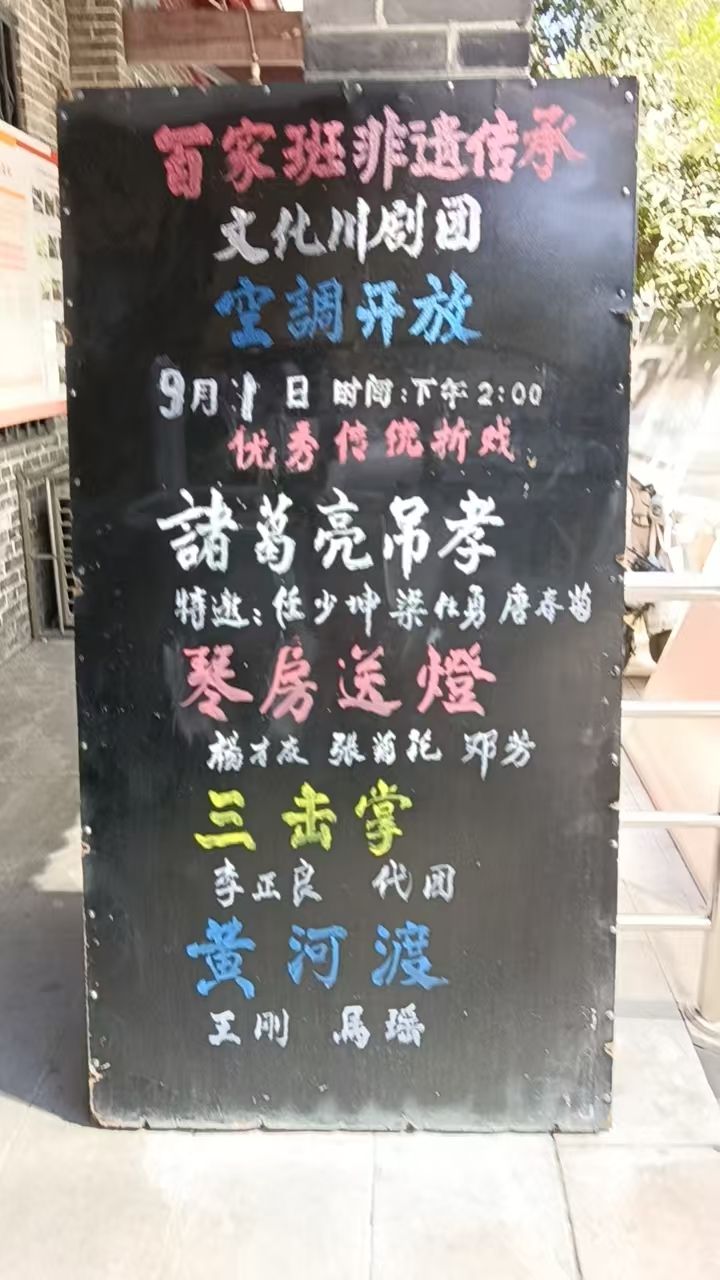 百家班非遗传承
文化川剧团
空調开放
9月1日 时间:下午2:00
优秀传统折戏
諸葛亮吊孝
特邀:任少坤 梁仕勇 唐春菊
琴房送燈
杨才友 张菊花 邓芳
三击掌
李正良 代团
黄河渡
王刚 馬瑶